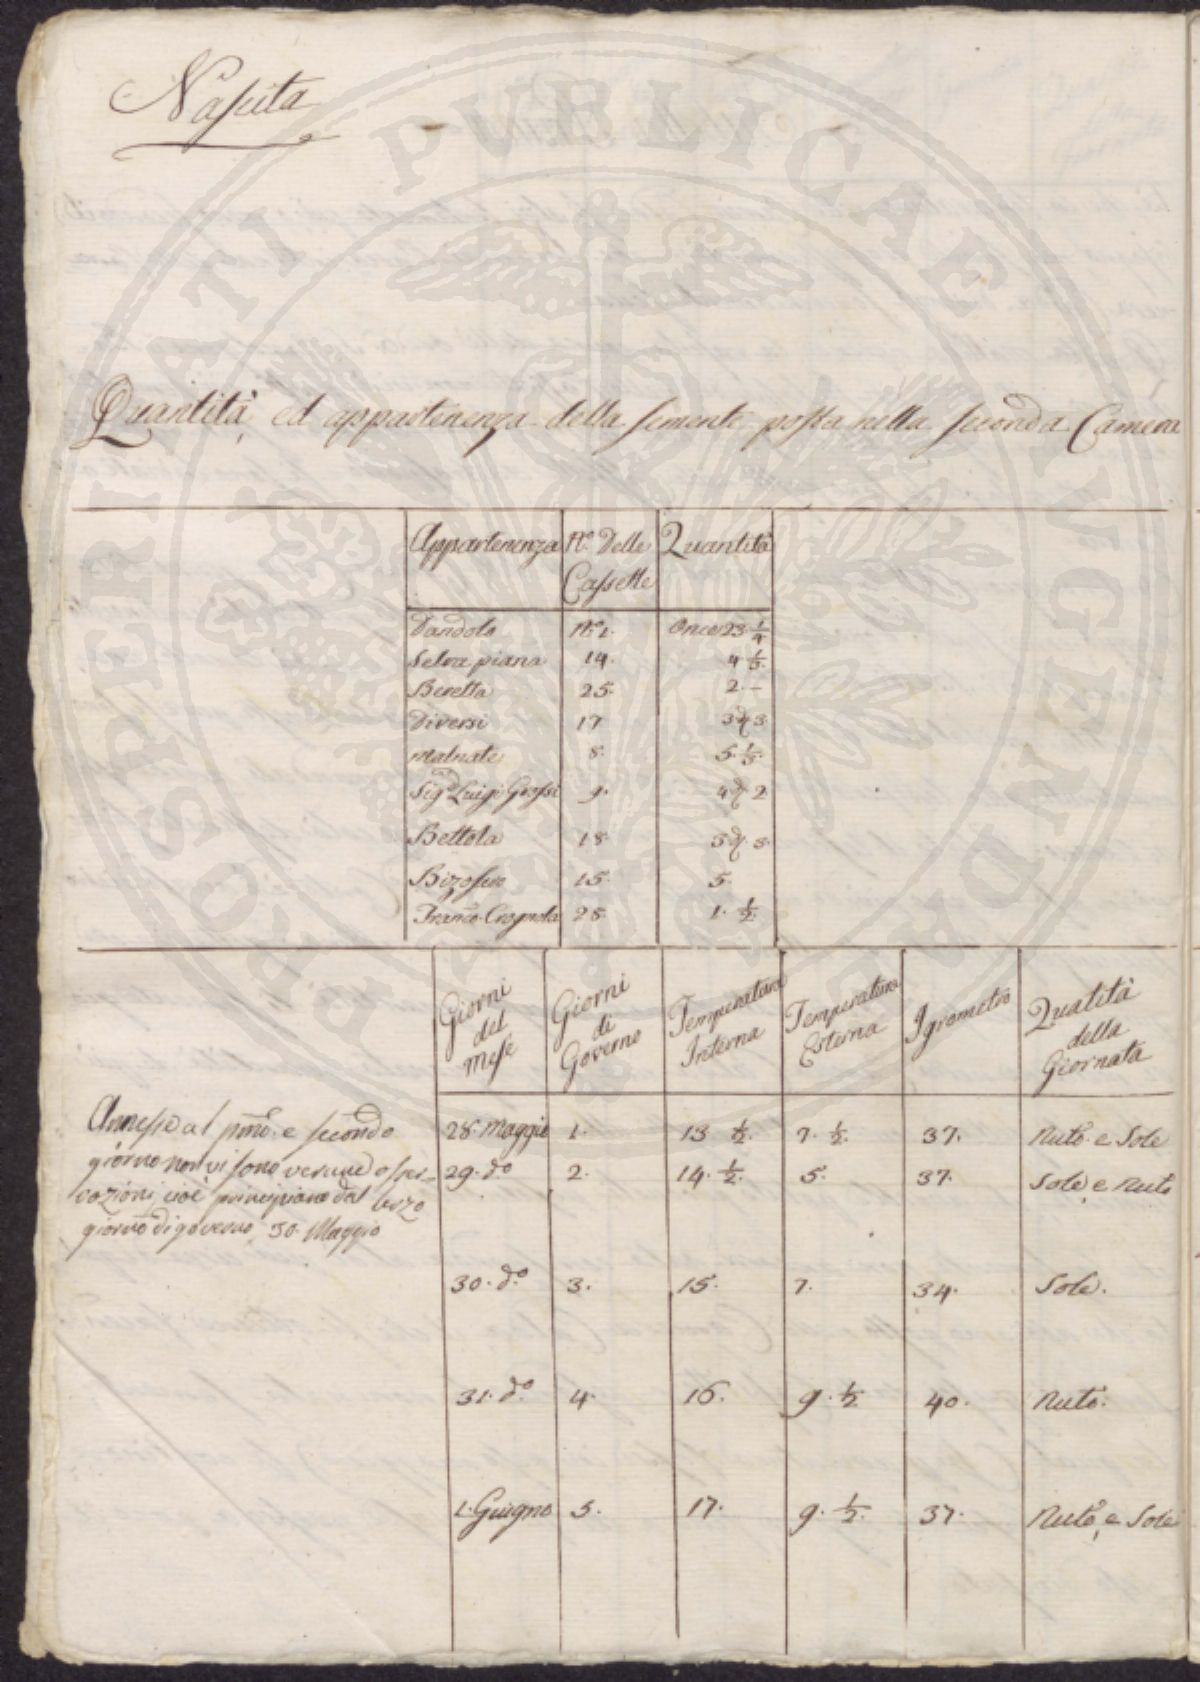 Nascita
Quantità, ed appartenenza della semente posta nella seconda Camera
Appartenenza N.º Delle Quantità
Cassette
Dandolo N.º 1. Oncie 23 1/4
Selva piana 14. 4 1/3.
Beretta 25. 2. –
Diversi 17 3 q 3
Malnate 8. 5. 1/3.
Sig.r Luigi Grossi 9. 4 q 2
Bettola 18 3 q. 3.
Bizosero 15. 5.
Franc.o Crognola 28. 1. 1/2.
Giorni del Mese Giorni di Governo Temperatura Interna Temperatura Esterna Igrometro Qualità della Giornata
Annesso al pmo. e secondo
giorno non vi sono verune osser-
vazioni, cioè principiano dal terzo
giorno di governo, 30. Maggio
28. Maggio 1. 13 1/2. 7. 1/2. 37. Nuto. e Sole
29. do. 2. 14. 1/2. 5. 37. Sole, e Nuto
30. do. 3. 15. 7. 34. Sole.
31. do. 4. 16. 9. 1/2 40. Nuto.
1. Giugno 5. 17. 9. 1/2. 37. Nuto, e Sole
PROSPERITATI PUBLICAE AUGENDAE